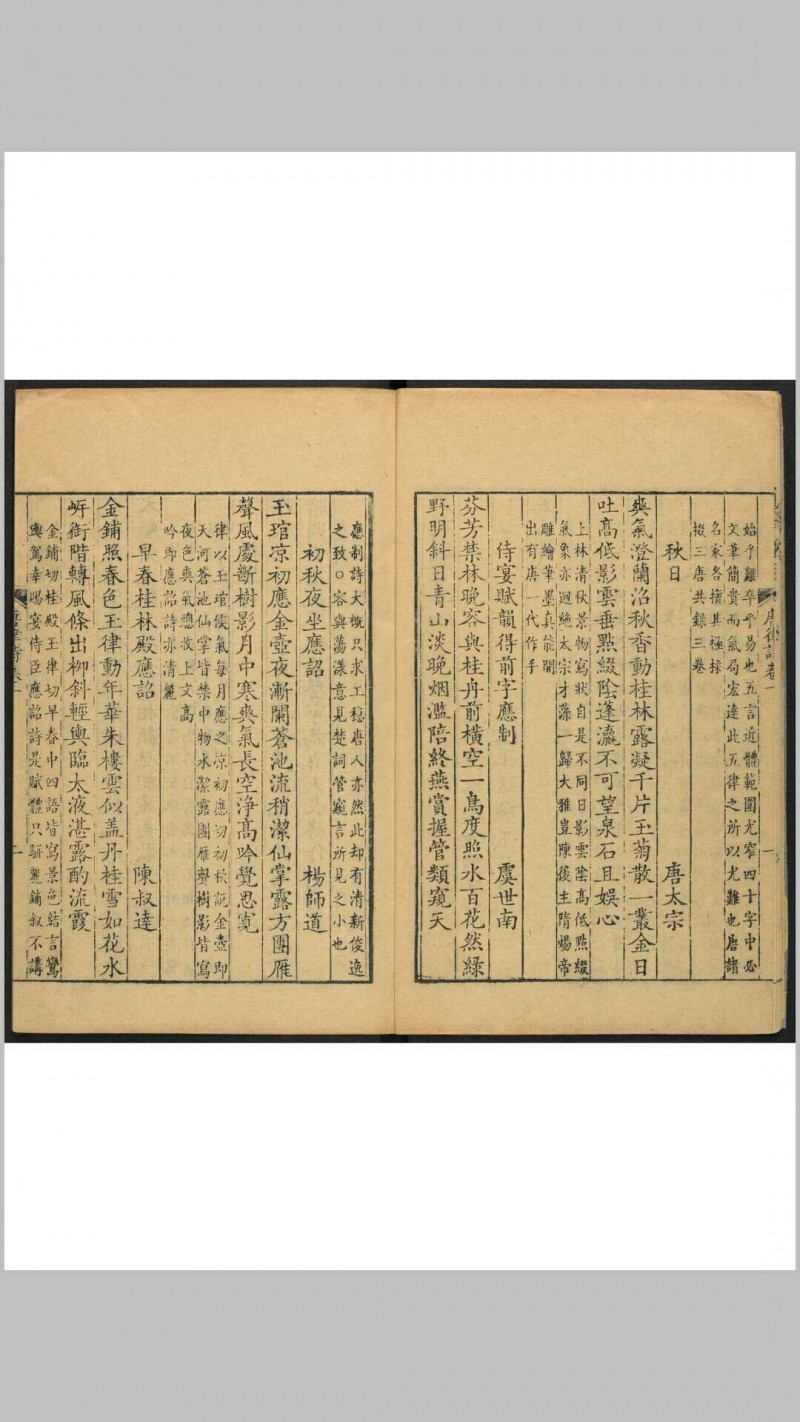 始乎難卒乎易也五言近體範圍尤窄四十字中必
文筆簡貴而氣局宏達此五律之所以尤難也唐諸
名家各擅其極採
掇三唐共錄三卷
秋日 唐太宗
爽氣澄蘭沼秋香動桂林露凝千片玉菊散一叢金日
吐高低影雲垂點綴陰蓬瀛不可望泉石且娛心
上林清秋景物寫狀自是不同日影雲陰高低點綴
氣象亦迥絕太宗才藻一歸大雅豈陳後主隋煬帝
雕繪筆墨真能開
出有唐一代作手
侍宴賦韻得前字應制 虞世南
芬芳禁林晚容與桂舟前橫空一鳥度照水百花然綠
野明斜日青山淡晚烟濫陪終燕賞握管類窺天
應制詩大概只求工穩唐人亦然此却有清新俊逸
之致○容與蕩漾意見楚詞管窺言所見之小也
初秋夜坐應詔 楊師道
玉琯凉初應金壺夜漸闌蒼池流稍潔仙掌露方團雁
聲風處斷樹影月中寒爽氣長空淨高吟覺思寬
律以玉琯候氣每月應之凉初應切初秋說金壺即
天河蒼池仙掌皆禁中物水潔露團雁聲樹影皆寫
夜色爽氣總收上文高
吟即應詔詩亦清麗
早春桂林殿應詔 陳叔達
金鋪照春色玉律動年華朱樓雲似盖丹桂雪如花水
岍銜階轉風條出柳斜輕輿臨太液湛露酌流霞
金鋪切桂殿玉律切早春中四語皆寫景色結言鸞
輿駕幸賜宴侍臣應詔詩是賦體只駢麗鋪叙不講